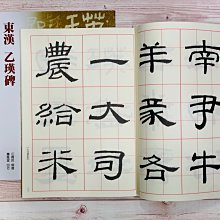 東漢 乙瑛碑
南尹牛
羊豕各
一大司
農給米